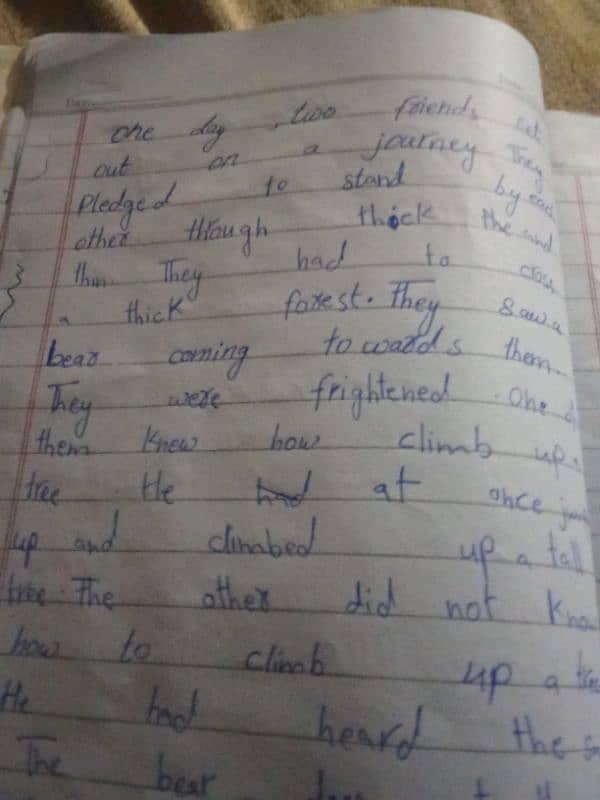 one day , two friends set
out on a journey They
Pledged to stand by each
other though thick the and
thin They had to cross
a thick forest. They saw a
bear coming towards them.
They were frightened . One
them knew how climb up
tree . He had at once
up and climbed up a tall
tree . The other did not know
how to climb up a tree
He had heard the
The bear